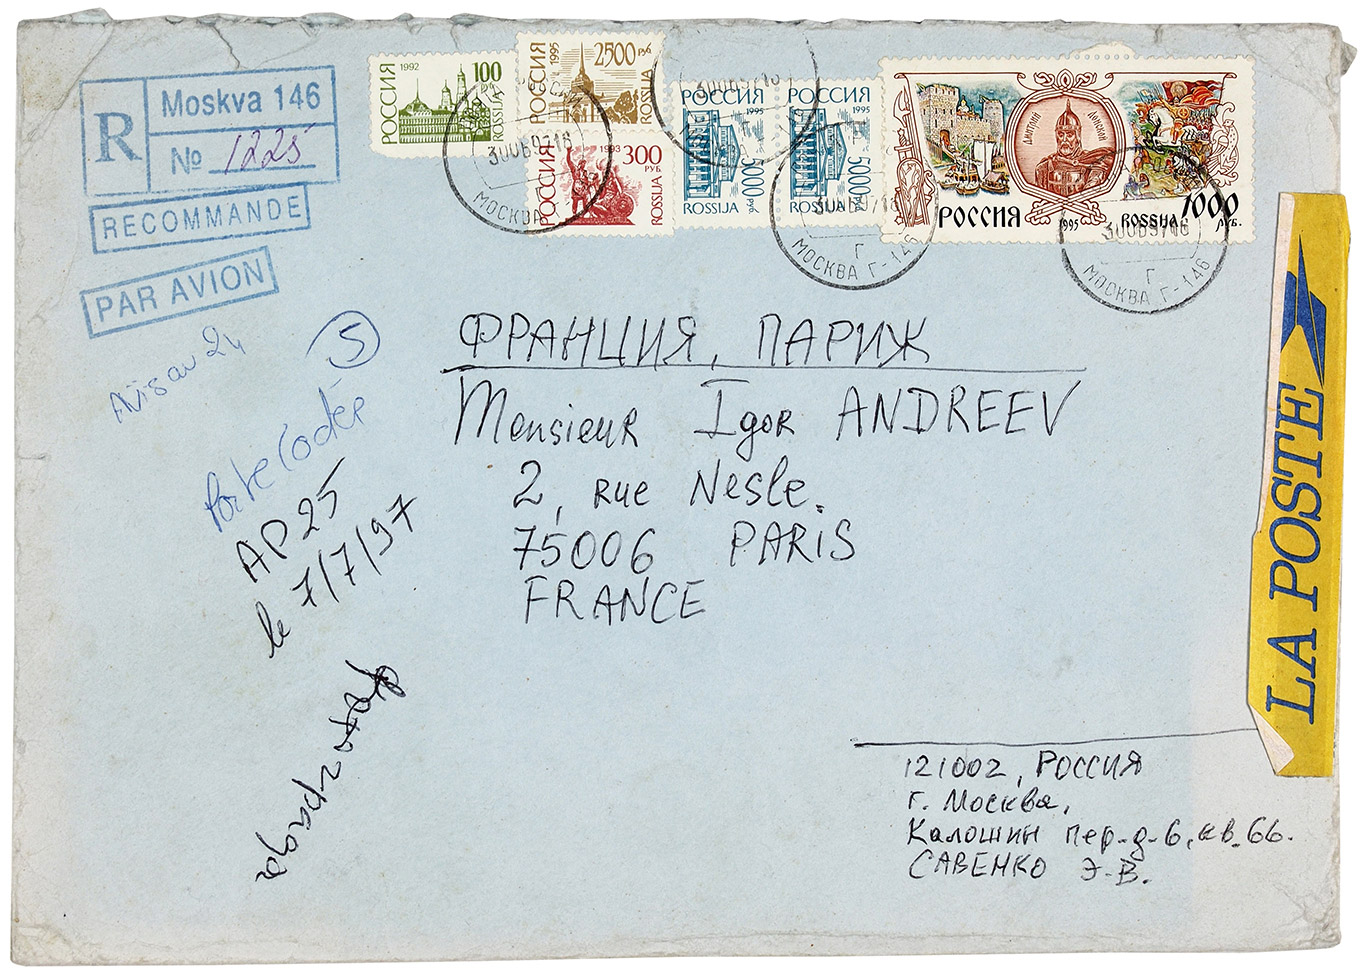 R
Moskva 146
№ 1225
RECOMMANDE
PAR AVION
РОССИЯ 1992 100 РУБ ROSSIJA
РОССИЯ 1995 2500 РУБ ROSSIJA
РОССИЯ 1993 300 РУБ. ROSSIJA
РОССИЯ 1995 5000 РУБ ROSSIJA
РОССИЯ 1995 5000 РУБ ROSSIJA
Дмитрий Донской
РОССИЯ 1995 ROSSIJA 1000 РУБ.
МОСКВА
МОСКВА Г-146
Г
МОСКВА Г-146
Г
ФРАНЦИЯ, ПАРИЖ
Monsieur Igor ANDREEV
2, rue Nesle.
75006 PARIS
FRANCE
5
Porte Codée
AP25
le 7/7/97
фотографга
LA POSTE
121002, РОССИЯ
г. Москва,
Калошин пер. д-6, кв. 66.
САВЕНКО Э.В.